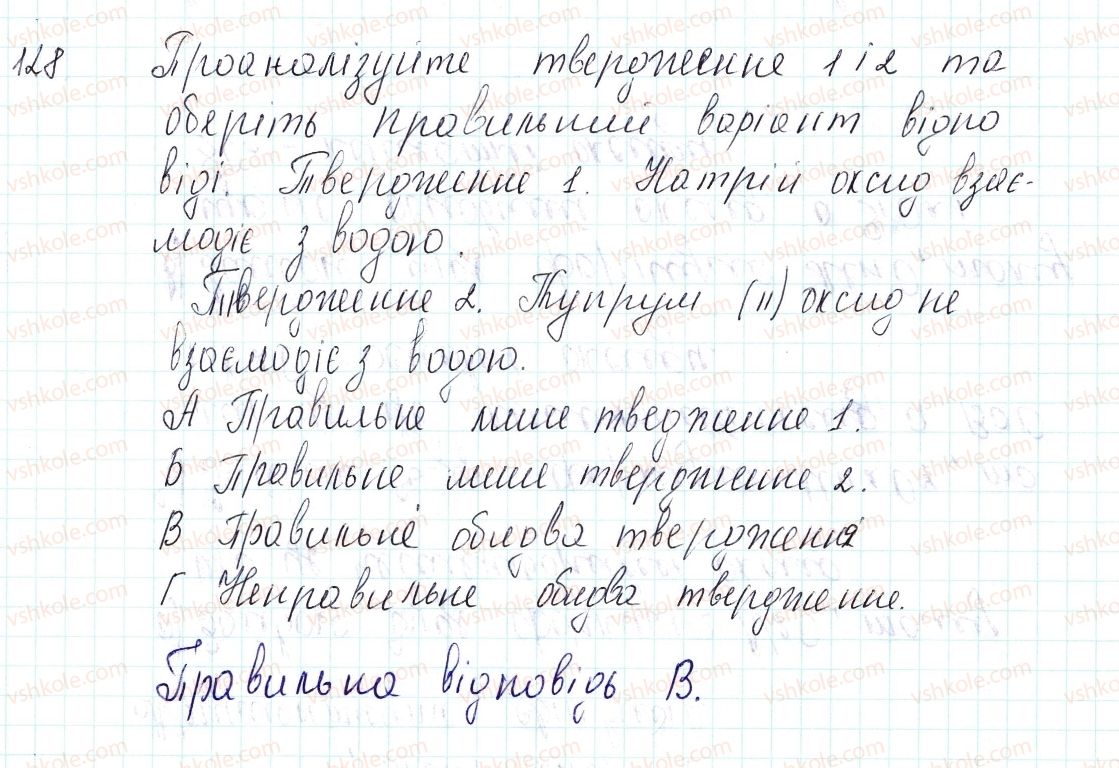 128 Проаналізуйте твердження 1 і 2 та
оберіть правильний варіант відпо
віді. Твердження 1. Натрій оксид взає-
модіє з водою.
Твердження 2. Купрум (II) оксид не
взаємодіє з водою.
А Правильне лише тведження 1.
Б Правильне лише твердження 2.
В Правильне обидва твердження
Г Неправильне обидва твердження.
Правильна відповідь В.